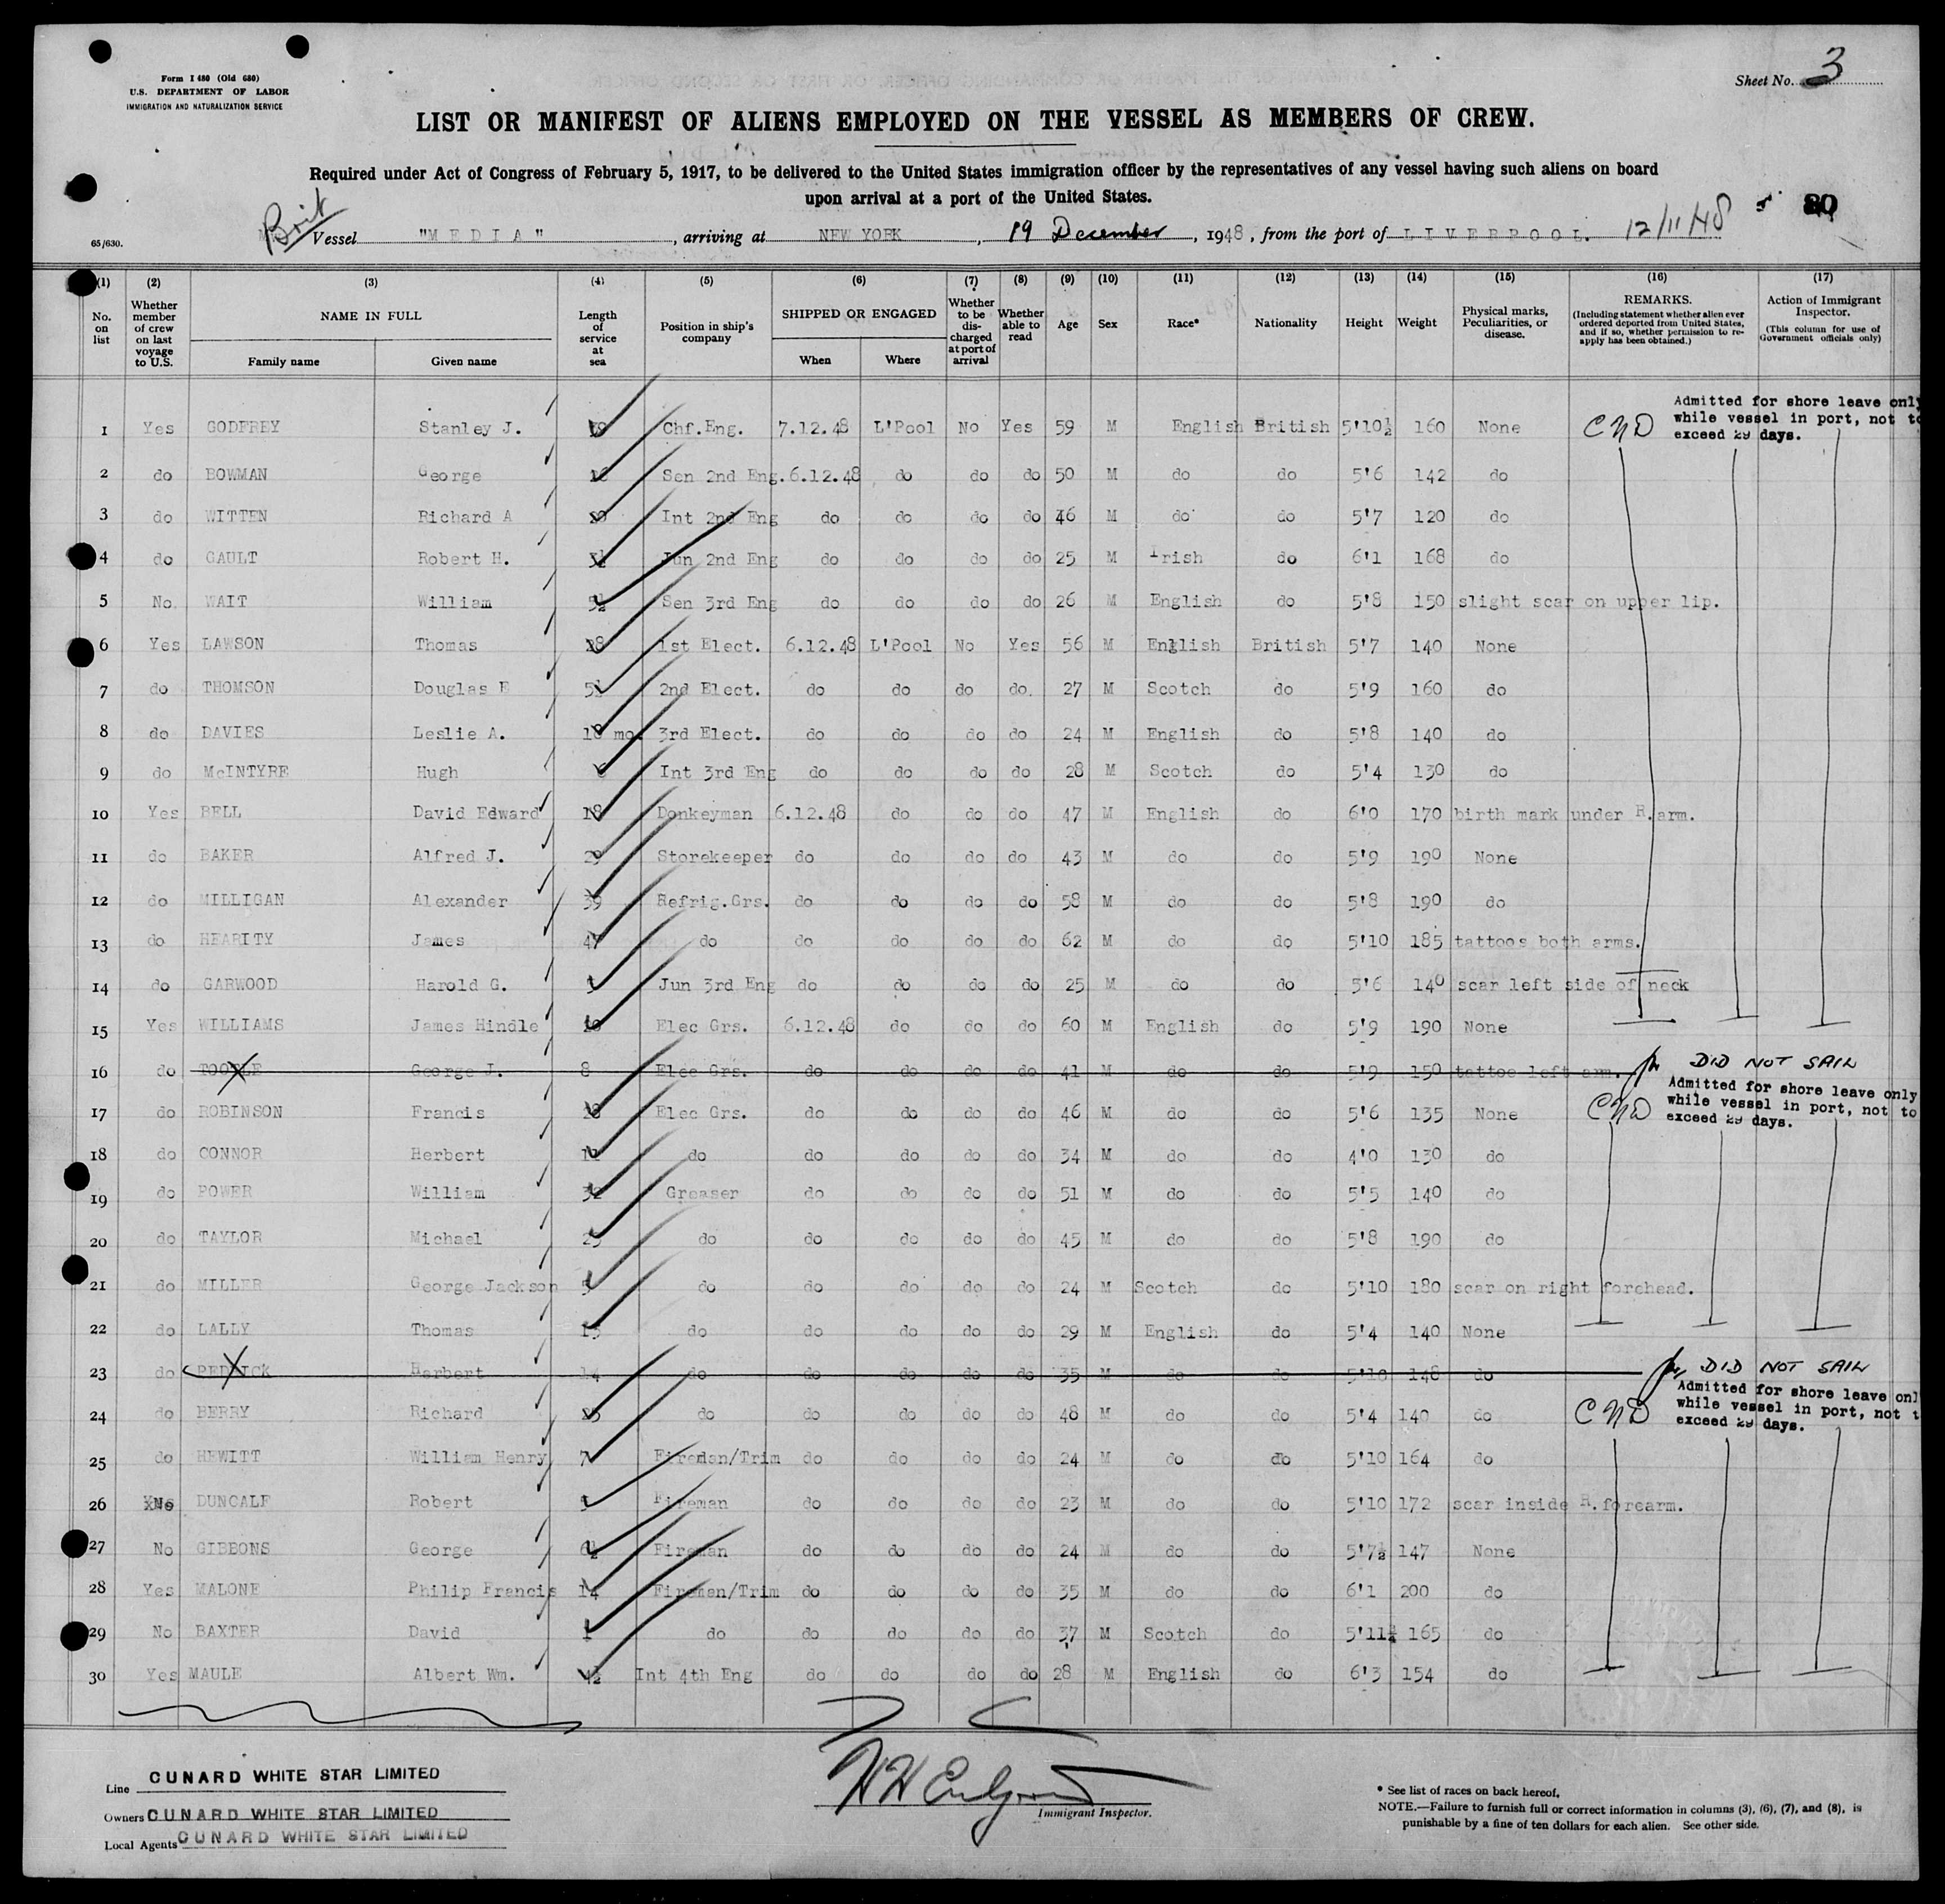 Form I 480 (Old 680)
U.S. DEPARTMENT OF LABOR
IMMIGRATION AND NATURALIZATION SERVICE
Sheet No. 3
LIST OR MANIFEST OF ALIENS EMPLOYED ON THE VESSEL AS MEMBERS OF CREW.
Required under Act of Congress of February 5, 1917, to be delivered to the United States immigration officer by the representatives of any vessel having such aliens on board
upon arrival at a port of the United States.
80
65/630.
Brit Vessel "MEDIA", arriving at NEW YORK, 19 December, 1948, from the port of LIVERPOOL. 12/11/48
(1) (2) (3) (4) (5) (6) (7) (8) (9) (10) (11) (12) (13) (14) (15) (16) (17)
No. on list
Whether member of crew on last voyage to U.S.
NAME IN FULL
Family name
Given name
Length of service at sea
Position in ship's company
SHIPPED OR ENGAGED
When
Where
Whether to be discharged at port of arrival
Whether able to read
Age
Sex
Race*
Nationality
Height
Weight
Physical marks, Peculiarities, or disease.
REMARKS.
(Including statement whether alien ever ordered deported from United States, and if so, whether permission to re-apply has been obtained.)
Action of Immigrant Inspector.
(This column for use of Government officials only)
Admitted for shore leave only
while vessel in port, not to
exceed 29 days.
1 Yes GODFREY Stanley J. Chf.Eng. 7.12.48 L'Pool No Yes 59 M English British 5'10½ 160 None
2 do BOWMAN George Sen 2nd Eng. 6.12.48 do do do 50 M do do 5'6 142 do
3 do WITTEN Richard A Int 2nd Eng do do do do 46 M do do 5'7 120 do
4 do GAULT Robert H. Jun 2nd Eng do do do do 25 M Irish do 6'1 168 do
5 No. WAIT William 5½ Sen 3rd Eng do do do do 26 M English do 5'8 150 slight scar on upper lip.
6 Yes LAWSON Thomas 28 1st Elect. 6.12.48 L'Pool No Yes 56 M English British 5'7 140 None
7 do THOMSON Douglas E 5½ 2nd Elect. do do do do. 27 M Scotch do 5'9 160 do
8 do DAVIES Leslie A. 18 mo. 3rd Elect. do do do do 24 M English do 5'8 140 do
9 do McINTYRE Hugh Int 3rd Eng do do do do 28 M Scotch do 5'4 130 do
10 Yes BELL David Edward 18 Donkeyman 6.12.48 do do do 47 M English do 6'0 170 birth mark under R.arm.
11 do BAKER Alfred J. 29 Storekeeper do do do do 43 M do do 5'9 190 None
12 do MILLIGAN Alexander 39 Refrig.Grs. do do do do 58 M do do 5'8 190 do
13 do HEARITY James 47 do do do do do 62 M do do 5'10 185 tattoos both arms.
14 do GARWOOD Harold G. Jun 3rd Eng do do do do 25 M do do 5'6 140 scar left side of neck
15 Yes WILLIAMS James Hindle Elec Grs. 6.12.48 do do do 60 M English do 5'9 190 None
16 do George J. 8 Elec Grs. do do do do 41 M do do 5'9 150 tattoo left arm. DID NOT SAIL
Admitted for shore leave only
while vessel in port, not to
exceed 29 days.
17 do ROBINSON Francis 28 Elec Grs. do do do do 46 M do do 5'6 135 None
18 do CONNOR Herbert do do do do do 34 M do do 4'0 130 do
19 do POWER William 32 Greaser do do do do 51 M do do 5'5 140 do
20 do TAYLOR Michael do do do do do 45 M do do 5'8 190 do
21 do MILLER George Jackson 5 do do do do do 24 M Scotch do 5'10 180 scar on right forehead.
22 do LALLY Thomas do do do do do 29 M English do 5'4 140 None
23 do Herbert 14 do do do do do 35 M do do 5'10 148 do DID NOT SAIL
Admitted for shore leave only
while vessel in port, not t
exceed 29 days.
24 do BERRY Richard do do do do do 48 M do do 5'4 140 do
25 do HEWITT William Henry 7 Fireman/Trim do do do do 24 M do do 5'10 164 do
26 No DUNCALF Robert Fireman do do do do 23 M do do 5'10 172 scar inside R.forearm.
27 No GIBBONS George 6½ Fireman do do do do 24 M do do 5'7½ 147 None
28 Yes MALONE Philip Francis 14 Fireman/Trim do do do do 35 M do do 6'1 200 do
29 No BAXTER David do do do do do 37 M Scotch do 5'11½ 165 do
30 Yes MAULE Albert Wm. 4½ Int 4th Eng do do do do 28 M English do 6'3 154 do
Line CUNARD WHITE STAR LIMITED
Owners CUNARD WHITE STAR LIMITED
Local Agents CUNARD WHITE STAR LIMITED
Immigrant Inspector.
* See list of races on back hereof.
NOTE.—Failure to furnish full or correct information in columns (3), (6), (7), and (8), is
punishable by a fine of ten dollars for each alien. See other side.